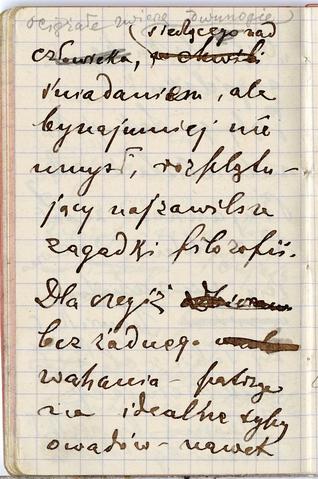 ociężałe zwierzę dwunogie
siedzącego nad
człowieka, w chwili
śniadaniem, ale
bynajmniej nie
umysł, rozplątu-
jący najzawilsze
zagadki filozofii.
Dla czegóż
bez żadnego
wahania - patrzę
na idealne syhy
owadów - nawet